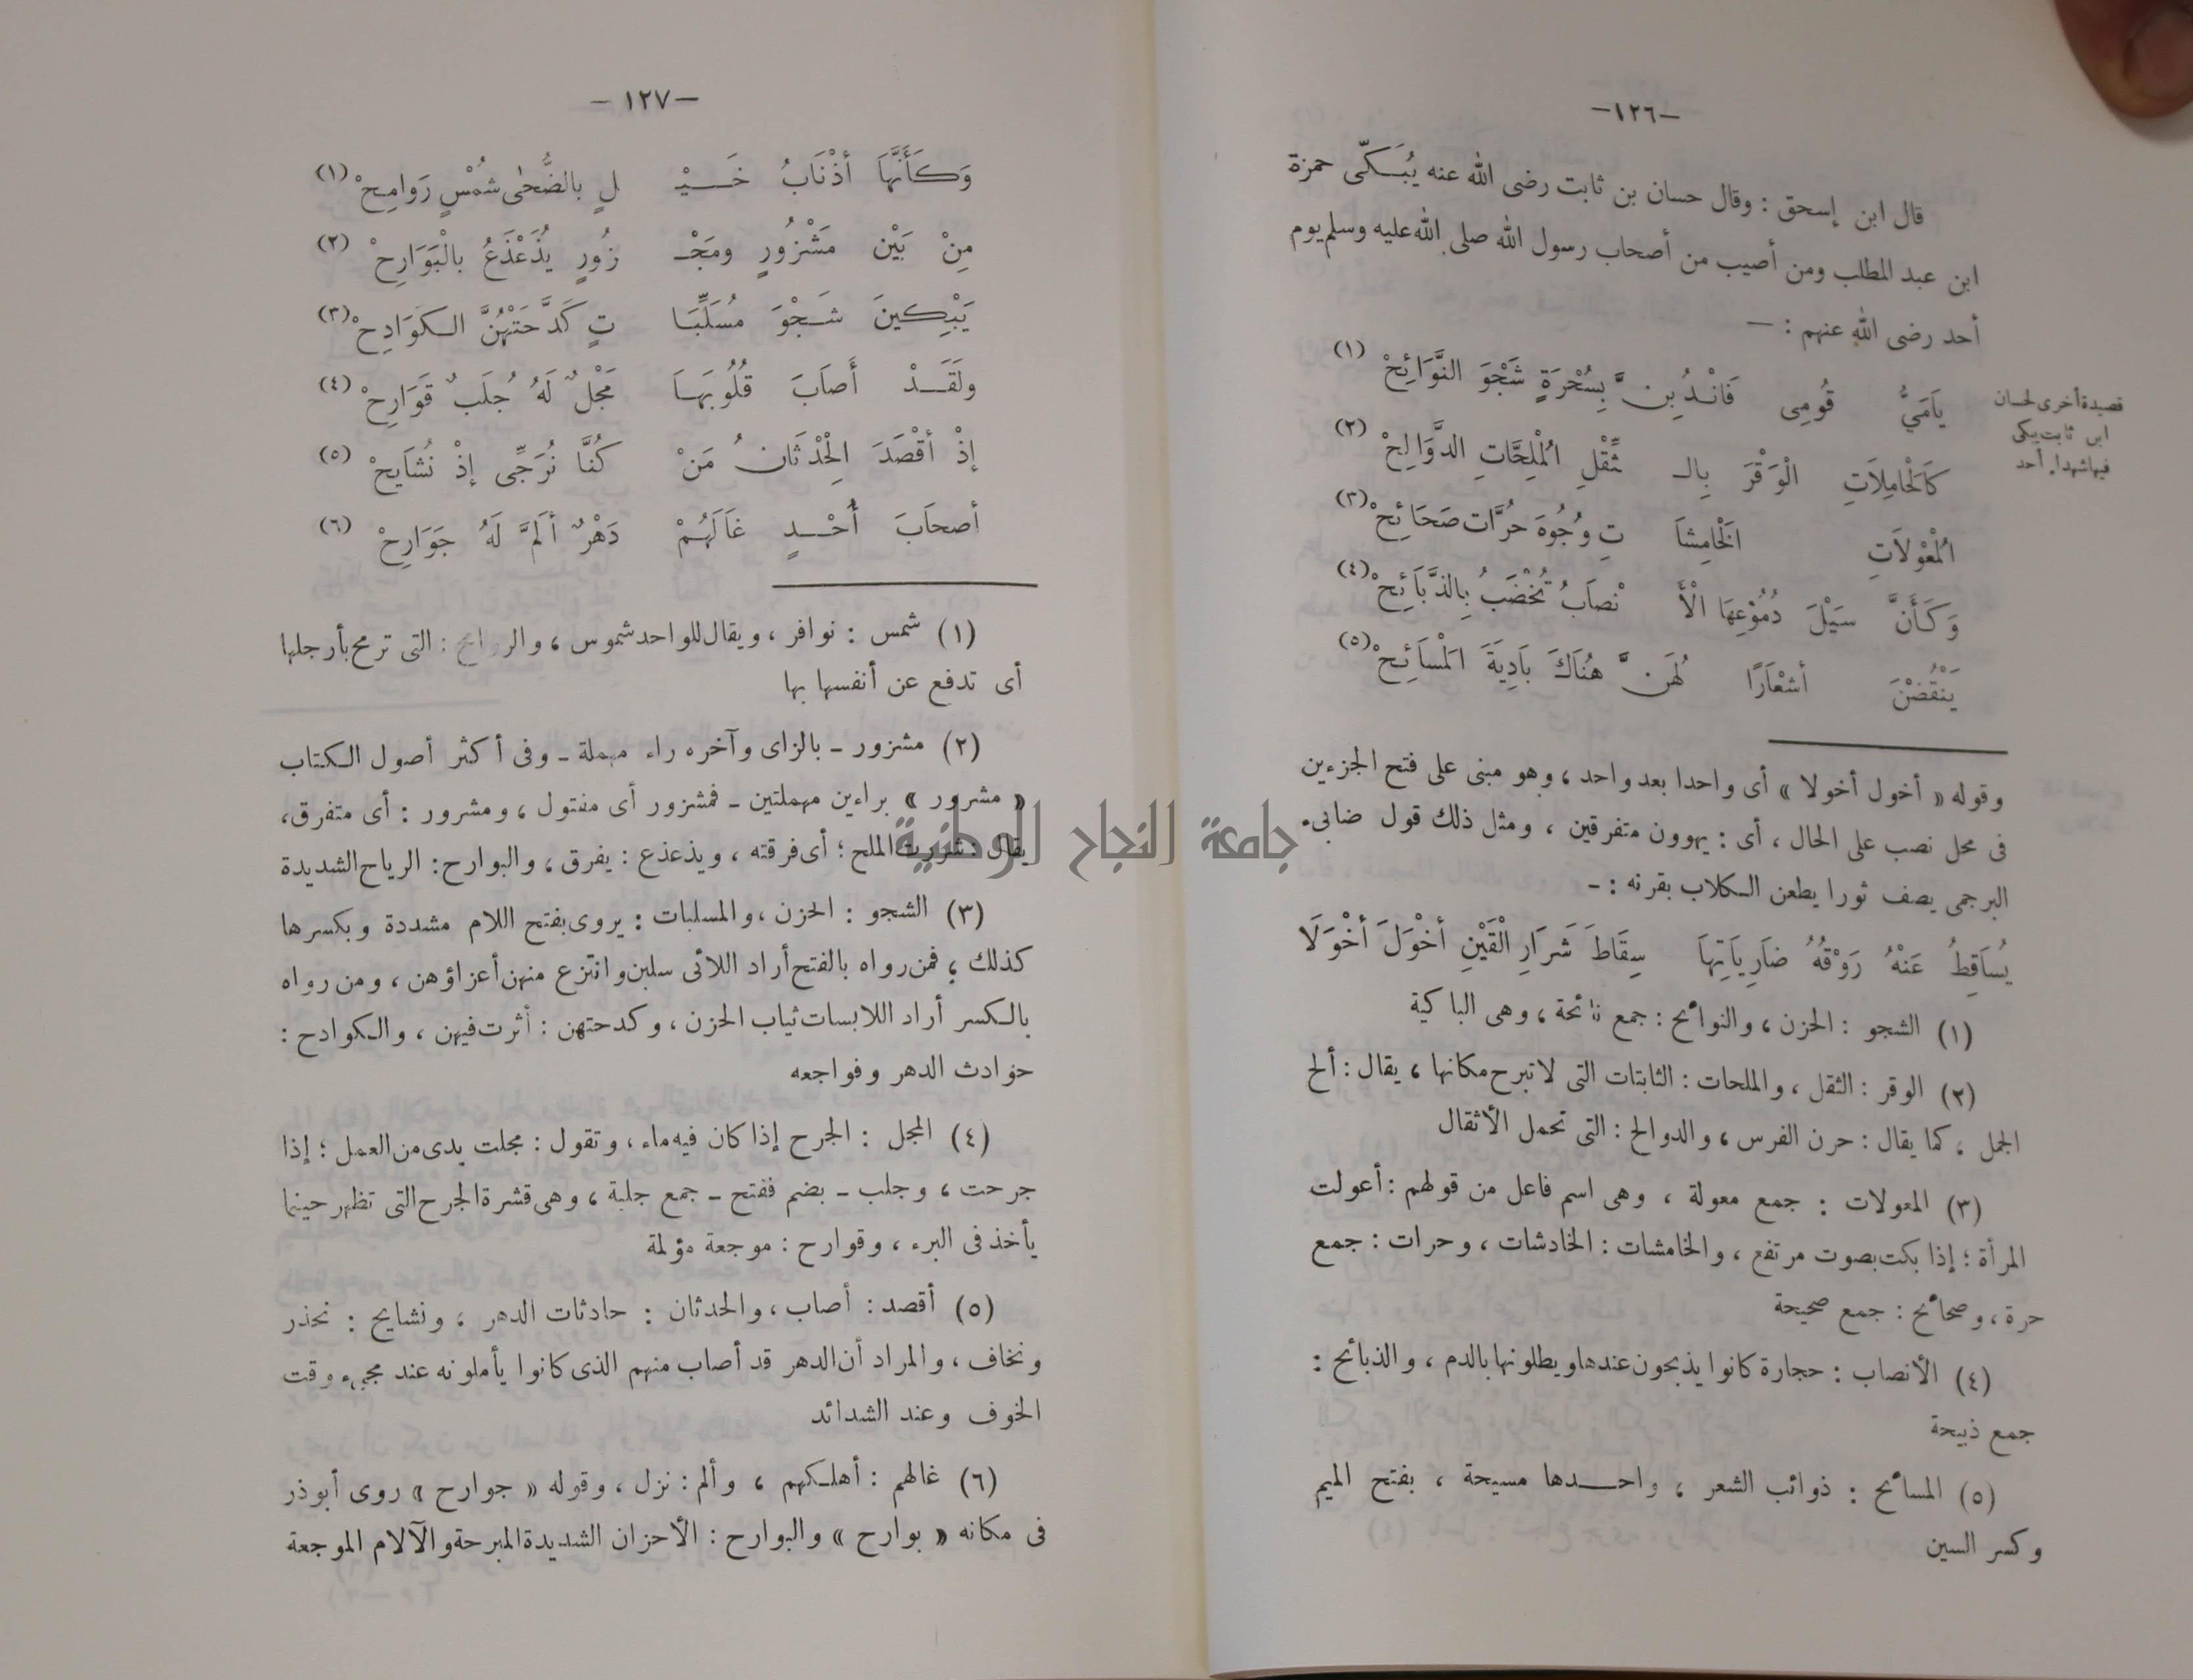 —١٢٦—
قال ابن إسحق : وقال حسان بن ثابت رضى الله عنه يُبَكِّى حمزة
ابن عبد المطلب ومن أصيب من أصحاب رسول الله صلى الله عليه وسلم يوم
أحد رضى الله عنهم : —
قصيدة أخرى لحسان
ابن ثابت يبكى
فيها شهداء أحد
يَامَىُّ قُومِى فَانْدُبِنَّ بِسُحْرَةٍ شَجْوَ النَّوَائِحْ (١)
كَالْحَامِلَاتِ الْوَقْرَ بِالـ ثِّقْلِ الْمُلِحَّاتِ الدَّوَالِحْ (٢)
الْمُعْوِلَاتِ الْخَامِشَا تِ وُجُوهَ حُرَّات صَحَائِحْ (٣)
وَكَأَنَّ سَيْلَ دُمُوْعِهَا الْأَ نْصَابُ تُخْضَبُ بِالذَّبَائِحْ (٤)
يَنْقُضْنَ أشْعَارًا لَهُنَّ هُنَاكَ بَادِيَةَ الْمَسَائِحْ (٥)
وقوله « أخول أخولا » أى واحدا بعد واحد ، وهو مبنى على فتح الجزءين
فى محل نصب على الحال ، أى : يهوون متفرقين ، ومثل ذلك قول ضابىء
البرجمى يصف ثورا يطعن الكلاب بقرنه : -
يُسَاقِطُ عَنْهُ رَوْقُهُ ضَارِيَاتِهَا سِقَاطَ شَرَارِ الْقَيْنِ أخْوَلَ أخْوَلَا
(١) الشجو : الحزن ، والنوائح : جمع نائحة ، وهى الباكية
(٢) الوقر : الثقل ، والملحات : الثابتات التى لا تبرح مكانها ، يقال : ألح
الجمل ، كما يقال : حرن الفرس ، والدوالح : التى تحمل الأثقال
(٣) المعولات : جمع معولة ، وهى اسم فاعل من قولهم : أعولت
المرأة ؛ إذا بكت بصوت مرتفع ، والخامشات : الخادشات ، وحرات : جمع
حرة ، وصحائح : جمع صحيحة
(٤) الأنصاب : حجارة كانوا يذبحون عندها ويطلونها بالدم ، والذبائح :
جمع ذبيحة
(٥) المسائح : ذوائب الشعر ، واحدها مسيحة ، بفتح الميم
وكسر السين
— ١٢٧ —
وَكَأَنَّهَا أذْنَابُ خَيْـ لٍ بالضُّحَى شُمْسٍ رَوَامِحْ (١)
مِنْ بَيْن مَشْزُورٍ ومَجْـ زُورٍ يُذَعْذَعُ بالْبَوَارِحْ (٢)
يَبْكِينَ شَجْوَ مُسَلِّبَا تٍ كَدَّحَتْهُنَّ الكَوَادِحْ (٣)
ولَقَدْ أَصَابَ قُلُوبَهَا مَجْلٌ لَهُ جُلَبٌ قَوَارِحْ (٤)
إذْ أقْصَدَ الْحِدْثَانُ مَنْ كُنَّا نُرَجِّى إذْ نُشَايحْ (٥)
أصحَابَ أُحْدٍ غَالَهُمْ دَهْرٌ ألَمَّ لَهُ جَوَارِحْ (٦)
(١) شمس : نوافر ، ويقال للواحد شموس ، والروامح : التى ترمح بأرجلها
أى تدفع عن أنفسها بها
(٢) مشزور - بالزاى وآخره راء مهملة - وفى أكثر أصول الكتاب
« مشرور » براءين مهملتين - فمشزور أى مفتول ، ومشرور : أى متفرق ،
يقال : شررت الملح ؛ أى فرقته ، ويذعذع : يفرق ، والبوارح : الرياح الشديدة
(٣) الشجو : الحزن ، والمسلبات : يروى بفتح اللام مشددة وبكسرها
كذلك ، فمن رواه بالفتح أراد اللائى سلبن وانتزع منهن أعزاؤهن ، ومن رواه
بالكسر أراد اللابسات ثياب الحزن ، وكدحتهن : أثرت فيهن ، والكوادح :
حوادث الدهر وفواجعه
(٤) المجل : الجرح إذا كان فيه ماء ، وتقول : مجلت يدى من العمل ؛ إذا
جرحت ، وجلب - بضم ففتح - جمع جلبة ، وهى قشرة الجرح التى تظهر حينما
يأخذ فى البرء ، وقوارح : موجعة مؤلمة
(٥) أقصد : أصاب ، والحدثان : حادثات الدهر ، ونشايح : نحذر
ونخاف ، والمراد أن الدهر قد أصاب منهم الذى كانوا يأملونه عند مجىء وقت
الخوف وعند الشدائد
(٦) غالهم : أهلكهم ، وألم : نزل ، وقوله « جوارح » روى أبو ذر
فى مكانه « بوارح » والبوارح : الأحزان الشديدة المبرحة والآلام الموجعة
جامعة النجاح الوطنية